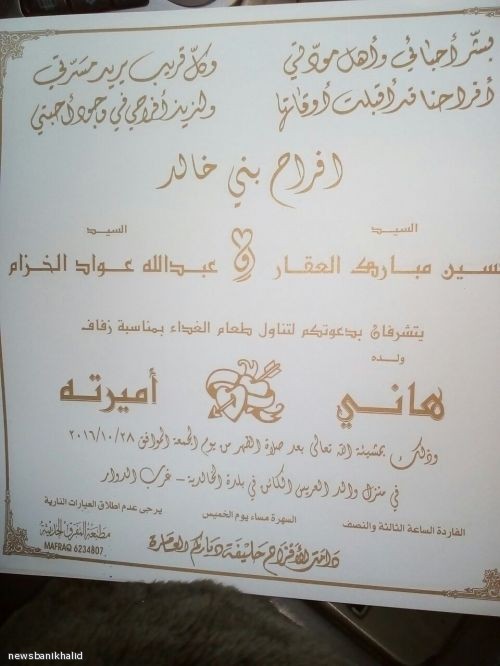 بشّر أحبائي وأهل مودّتي وكلّ قريب يريد مسرّتي
أفراحنا قد أقبلت أوقاتها ولنزيد أفراحي في وجود أحبتي
افراح بني خالد
السيد السيد
حسين مبارك العقار و عبدالله عواد الخزام
يتشرفان بدعوتكم لتناول طعام الغداء بمناسبة زفاف
ولده
هاني أميرته
وذلك بمشيئة الله تعالى بعد صلاة الظهر من يوم الجمعة الموافق ٢٠١٦/١٠/٢٨
في منزل والد العريس الكائن في بلدة الخالدية - غرب الدوار
الفاردة الساعة الثالثة والنصف السهرة مساء يوم الخميس يرجى عدم اطلاق العيارات النارية
دامت الأفراح حليفة دياركم العامرة
مطبعة المفرق الحديثة
MAFRAQ 6234807
newsbanikhalid